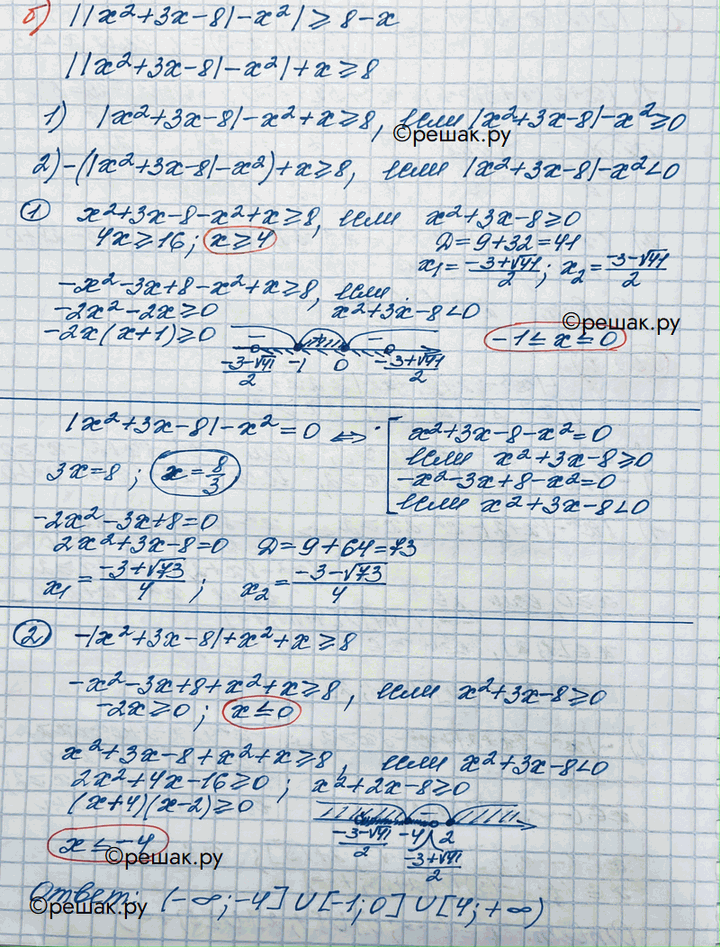 б) ||x²+3x-8|-x²| ≥ 8-x
||x²+3x-8|-x²|+x ≥ 8
1) |x²+3x-8|-x²+x ≥ 8, если |x²+3x-8|-x² ≥ 0
©решак.ру
2) -(|x²+3x-8|-x²)+x ≥ 8, если |x²+3x-8|-x² < 0
① x²+3x-8-x²+x ≥ 8, если x²+3x-8 ≥ 0
4x ≥ 16; x ≥ 4 D = 9+32 = 41
x₁ = (-3+√41)/2; x₂ = (-3-√41)/2
-x²-3x+8-x²+x ≥ 8, если
-2x²-2x ≥ 0 x²+3x-8 < 0
©решак.ру
-2x(x+1) ≥ 0 - + - -1 ≤ x ≤ 0
(-3-√41)/2 -1 0 (-3+√41)/2
|x²+3x-8|-x² = 0 ⇔ [ x²+3x-8-x² = 0
если x²+3x-8 ≥ 0
3x = 8; x = 8/3 -x²-3x+8-x² = 0
если x²+3x-8 < 0
-2x²-3x+8 = 0
2x²+3x-8 = 0 D = 9+64 = 73
x₁ = (-3+√73)/4; x₂ = (-3-√73)/4
② -|x²+3x-8|+x²+x ≥ 8
-x²-3x+8+x²+x ≥ 8, если x²+3x-8 ≥ 0
-2x ≥ 0; x ≤ 0
x²+3x-8+x²+x ≥ 8, если x²+3x-8 < 0
2x²+4x-16 ≥ 0; x²+2x-8 ≥ 0
(x+4)(x-2) ≥ 0
(-3-√41)/2 -4 2
(-3+√41)/2
x ≤ -4
©решак.ру
Ответ: (-∞;-4] ∪ [-1;0] ∪ [4;+∞)
©решак.ру